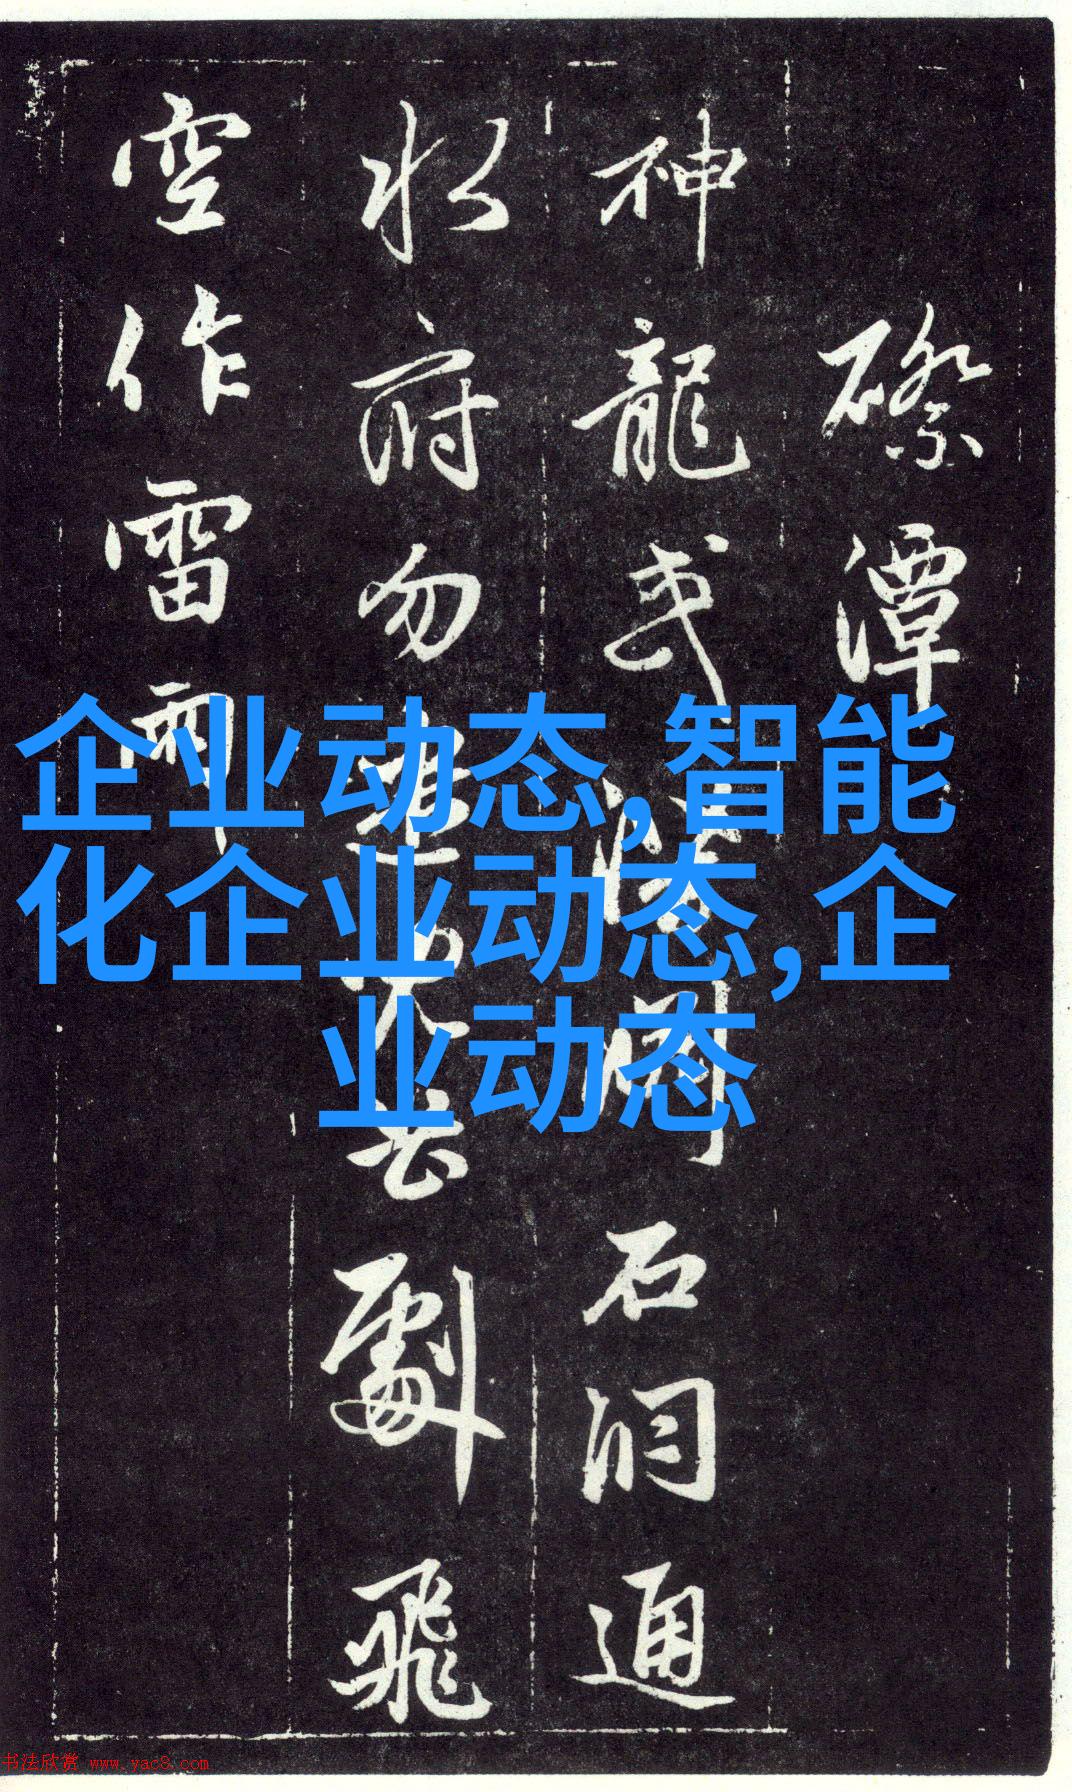 潭
神龍或石洞通
水府勿劇飛
空作雷雨
企业动态,智能
化企业动态,企
业动态
书法欣赏 www.yac8.com